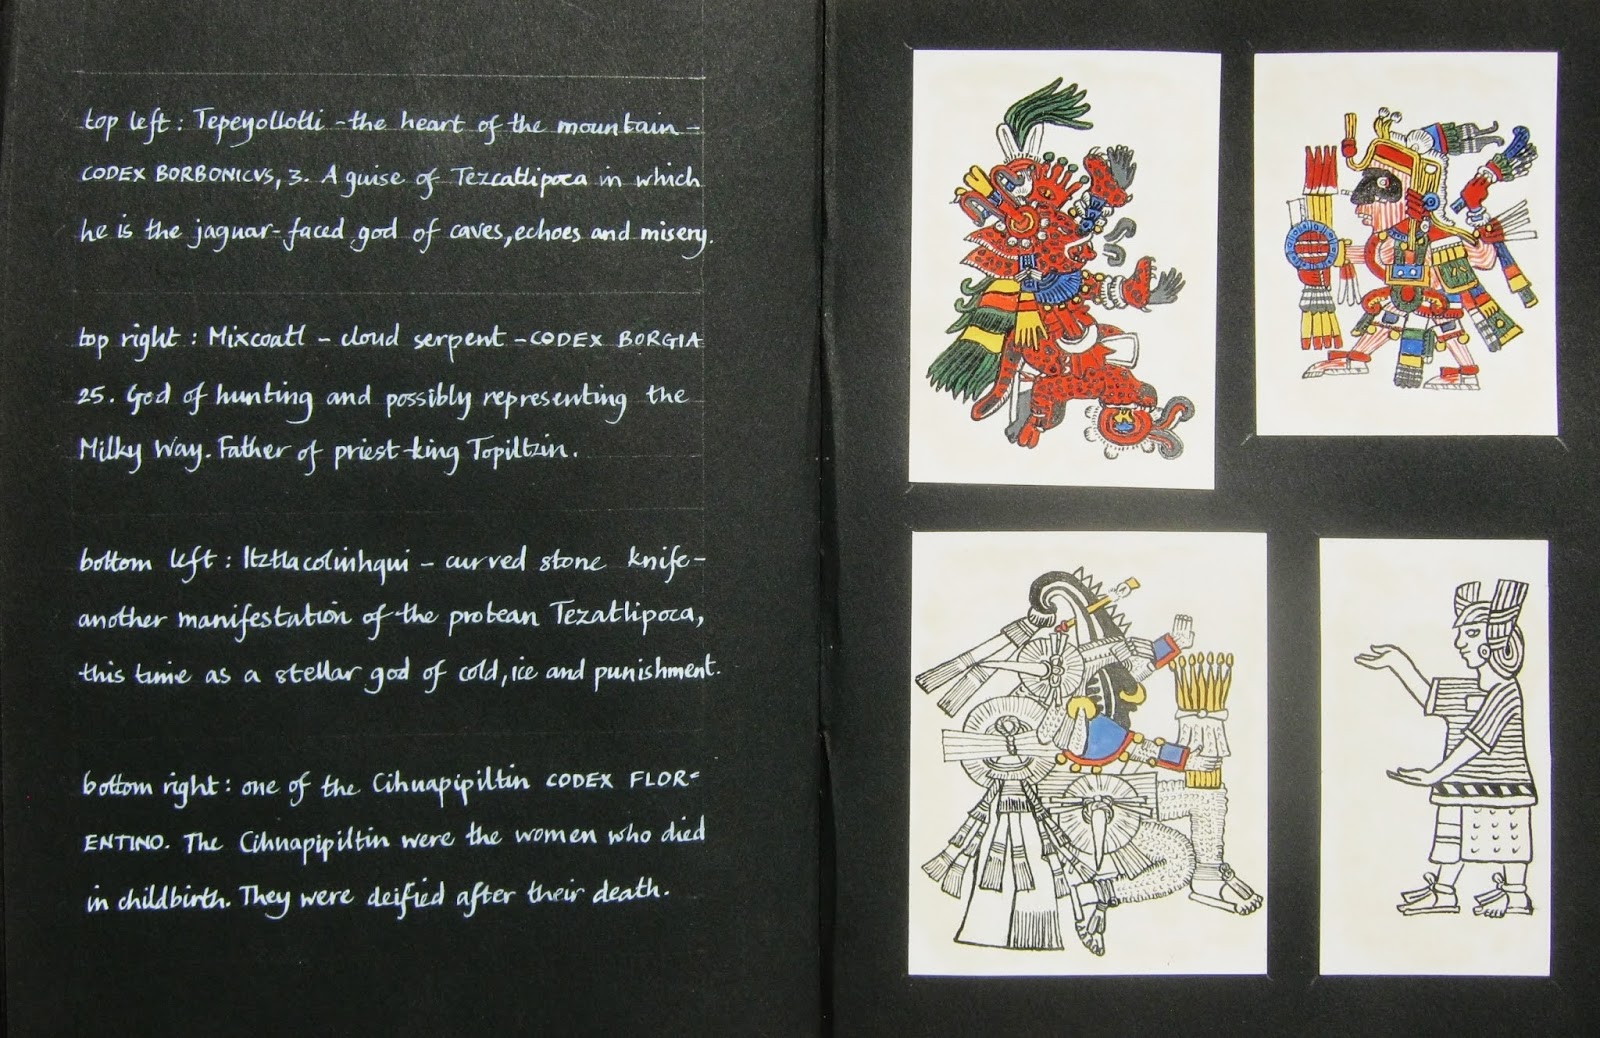 top left : Tepeyollotli - the heart of the mountain -
CODEX BORBONICUS, 3. A guise of Tezcatlipoca in which
he is the jaguar-faced god of caves, echoes and misery.
top right : Mixcoatl - cloud serpent - CODEX BORGIA
25. God of hunting and possibly representing the
Milky Way. Father of priest-king Topiltzin.
bottom left : Itztlacoliuhqui - curved stone knife -
another manifestation of the protean Tezatlipoca,
this time as a stellar god of cold, ice and punishment.
bottom right : one of the Cihuapipiltin CODEX FLOR-
ENTINO. The Cihuapipiltin were the women who died
in childbirth. They were deified after their death.